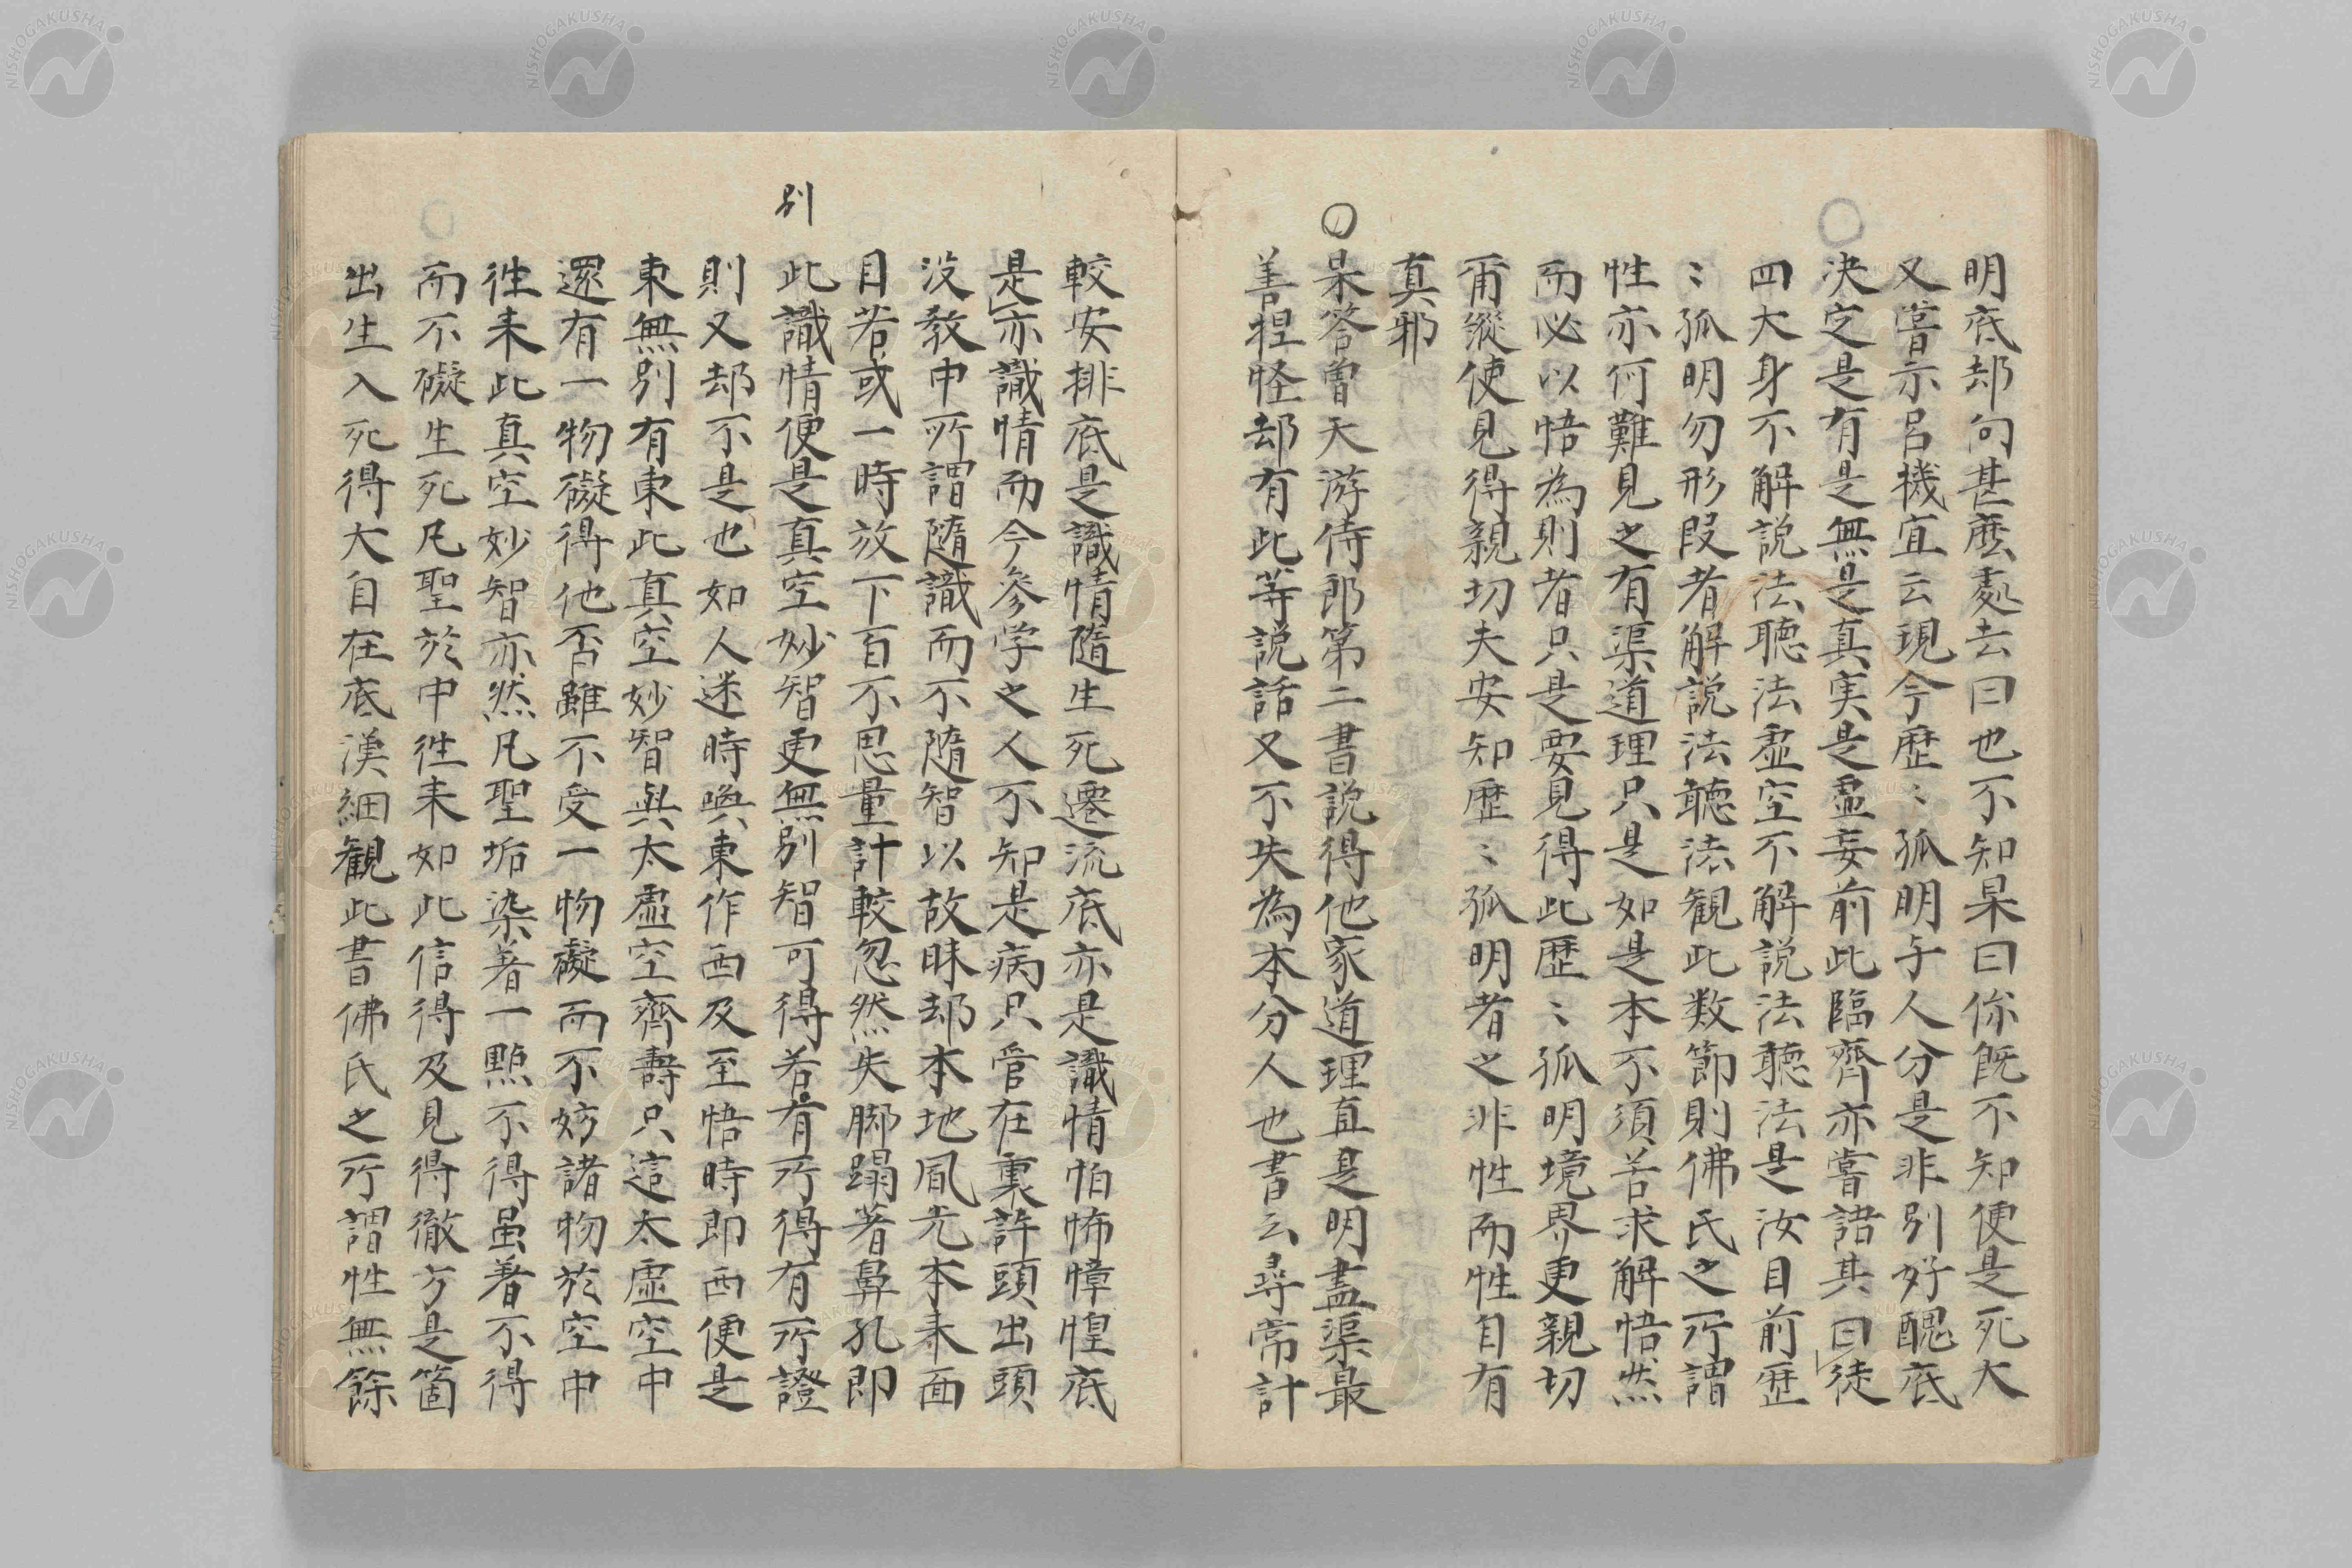 明底却向甚麽處去曰也不知杲曰你既不知便是死大
又嘗示呂機宜云現今歴〻孤明与人分是非別好醜底
决定是有是無是真実是虚妄前此臨齊亦嘗語其曰徒
四大身不解説法聴法虚空不解説法聴法是汝目前歴
〻孤明勿形段者解説法聴法観此数節則佛氏之所謂
性亦何難見之有渠道理只是如是本不須苦求解悟然
而必以悟為則者只是要見得此歴〻孤明境界更親切
爾縱使見得親切夫安知歴〻孤明者之非性而性自有
真邪
杲答曽天游侍郎第二書説得他家道理直是明盡渠最
善捏怪却有此等説話又不失為本分人也書云尋常計
較安排底是識情隨生死遷流底亦是識情怕怖慞惶底
是亦識情而今參学之人不知是病只管在裏許頭出頭
没教中所謂隨識而不隨智以故昧却本地風光本来面
目若或一時放下百不思量計較忽然失脚蹋著鼻孔即
別
此識情便是真空妙智更無別智可得若有所得有所證
則又却不是也如人迷時喚東作西及至悟時即西便是
東無別有東此真空妙智與太虚空齊壽只這太虚空中
還有一物礙得他否雖不受一物礙而不妨諸物於空中
徃来此真空妙智亦然凡聖垢染著一點不得虽著不得
而不礙生死凡聖於中徃来如此信得及見得徹方是箇
出生入死得大自在底漢細観此書佛氏之所謂性無餘
NISHOGAKUSHA